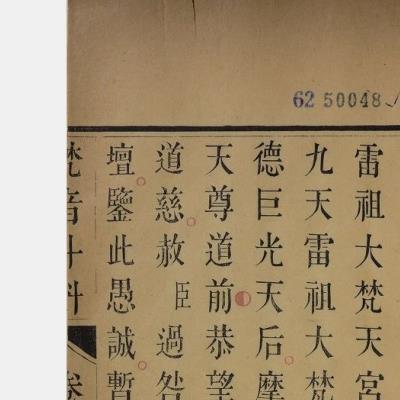 62 50048
雷祖大梵天宮
九天雷祖大梵
德巨光天后摩
天尊道前恭望
道慈赦臣過咎
壇鑒此愚誠暫
梵音斗科